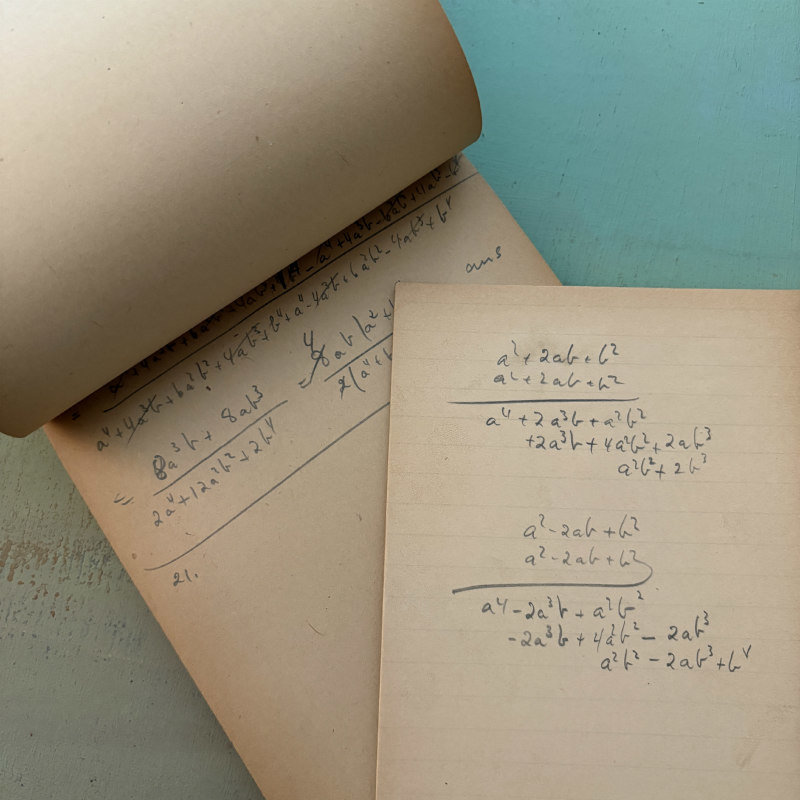 = a⁴ + 4a³b + 6a²b² + 4ab³ + b⁴ - a⁴ + 4a³b - 6a²b² + 4ab³ - b⁴
a⁴ + 4a³b + 6a²b² + 4ab³ + b⁴ + a⁴ - 4a³b + 6a²b² - 4ab³ + b⁴
= 8a³b + 8ab³ = 4 8ab(a² +
2a⁴ + 12a²b² + 2b⁴ 2(a⁴ + 6
ans
21.
a² + 2ab + b²
a² + 2ab + b²
a⁴ + 2a³b + a²b²
+2a³b + 4a²b² + 2ab³
a²b² + 2b³
a² - 2ab + b²
a² - 2ab + b²
a⁴ - 2a³b + a²b²
- 2a³b + 4a²b² - 2ab³
a²b² - 2ab³ + b⁴